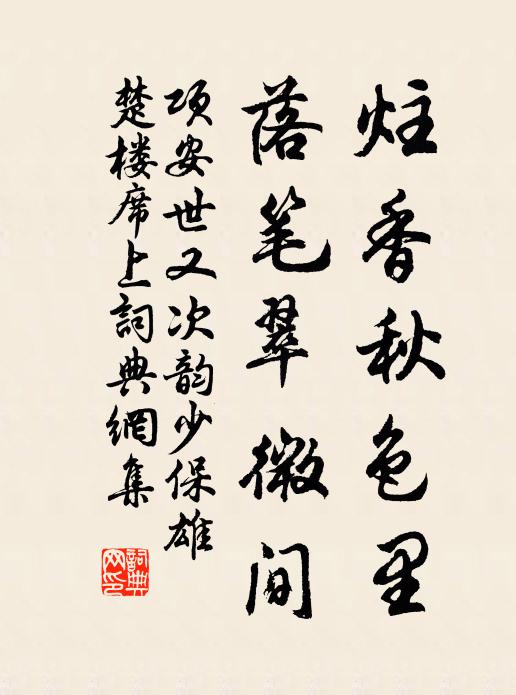 炷香秋色里
落笔翠微间
项安世又次韵少保雄
楚楼席上詞典網集
詞典网印